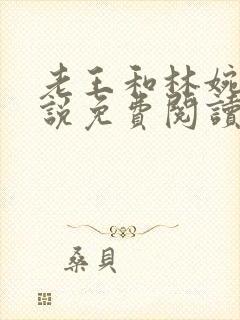 老王和林婉
說免費閱讀
桑貝